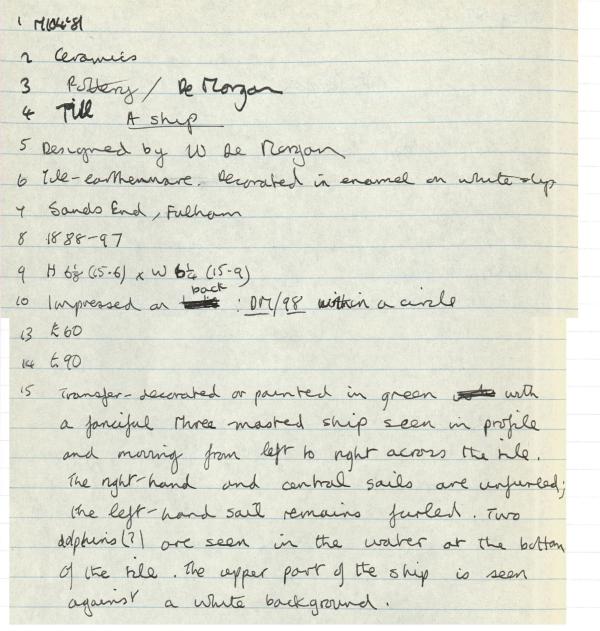 1 M104'81
2 Ceramics
3 Pottery / De Morgan
4 Till A ship
5 Designed by W De Morgan
6 Tile-earthenware. Decorated in enamel on white slip
7 Sands End, Fulham
8 1888-97
9 H 6⅛ (15.6) x W 6¼ (15.9)
10 Impressed on back : DM/98 within a circle
13 £60
14 £90
15 Transfer-decorated or painted in green with
a fanciful three masted ship seen in profile
and moving from left to right across the tile.
The right-hand and central sails are unfurled;
the left-hand sail remains furled. Two
dolphins(?) are seen in the water at the bottom
of the tile. The upper part of the ship is seen
against a white background.